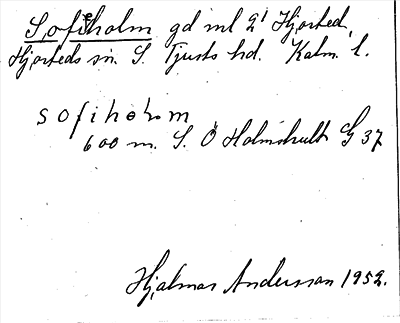 Sofieholm gd ml 2¹ Hjorted,
Hjorteds sn. S. Tjusts hd. Kalm. l.
sofihol·m
600 m. S. Ö Holmshult G 37
Hjalmar Andersson 1952.